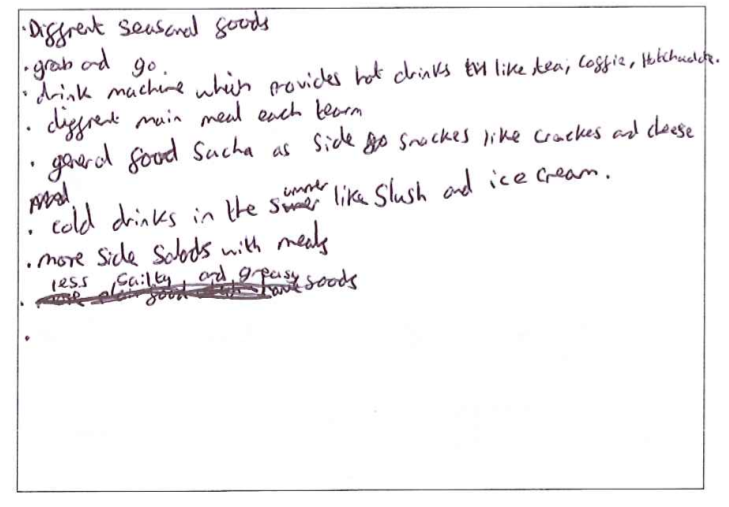 ·Diffrent seasonal foods
·grab and go.
· drink machine which provides hot drinks like tea, coffie, Hotchoclate.
· diffrent main meal each tearm
· generel food sucha as side snackes like crackes and cheese
· cold drinks in the summer like slush and ice cream.
· more side salads with meals
· less failty and greasy foods
·